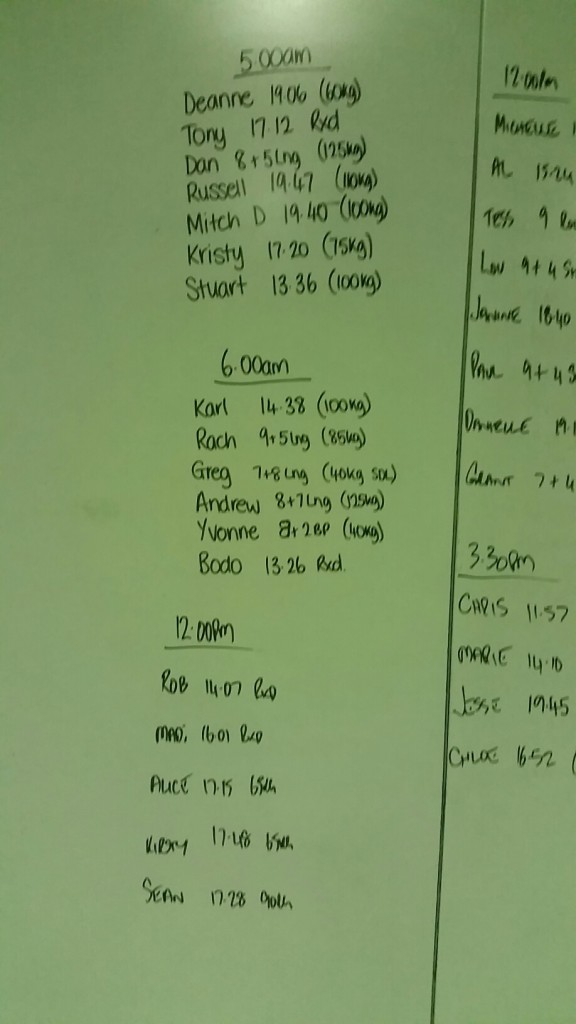 5.00am
Deanne 19.06 (60kg)
Tony 17.12 Rxd
Dan 8+5Lng (125kg)
Russell 19.47 (110kg)
Mitch D 19.40 (100kg)
Kristy 17.20 (75kg)
Stuart 13.36 (100kg)
6.00am
Karl 14.38 (100kg)
Rach 9+5lng (85kg)
Greg 7+8Lng (40kg SDL)
Andrew 8+7Lng (125kg)
Yvonne 8+2BP (40kg)
Bodo 13.26 Rxd.
12:00Pm
ROB 14.07 RxD
MAD. 16.01 RxD
ALICE 17.15 65kg
KIRSTY 17.48 65kg
SEAN 17.28 90kg
12:00Pm
MICHELLE
AL 15.24
TESS 9
LOU 9+4
JANINE 18.40
PAUL 9+4
DANIELLE 19.1
GRANT 7+4
3.30pm
CHRIS 11.57
MARIE 14.10
JESSE 19.45
CHLOE 16.52 (